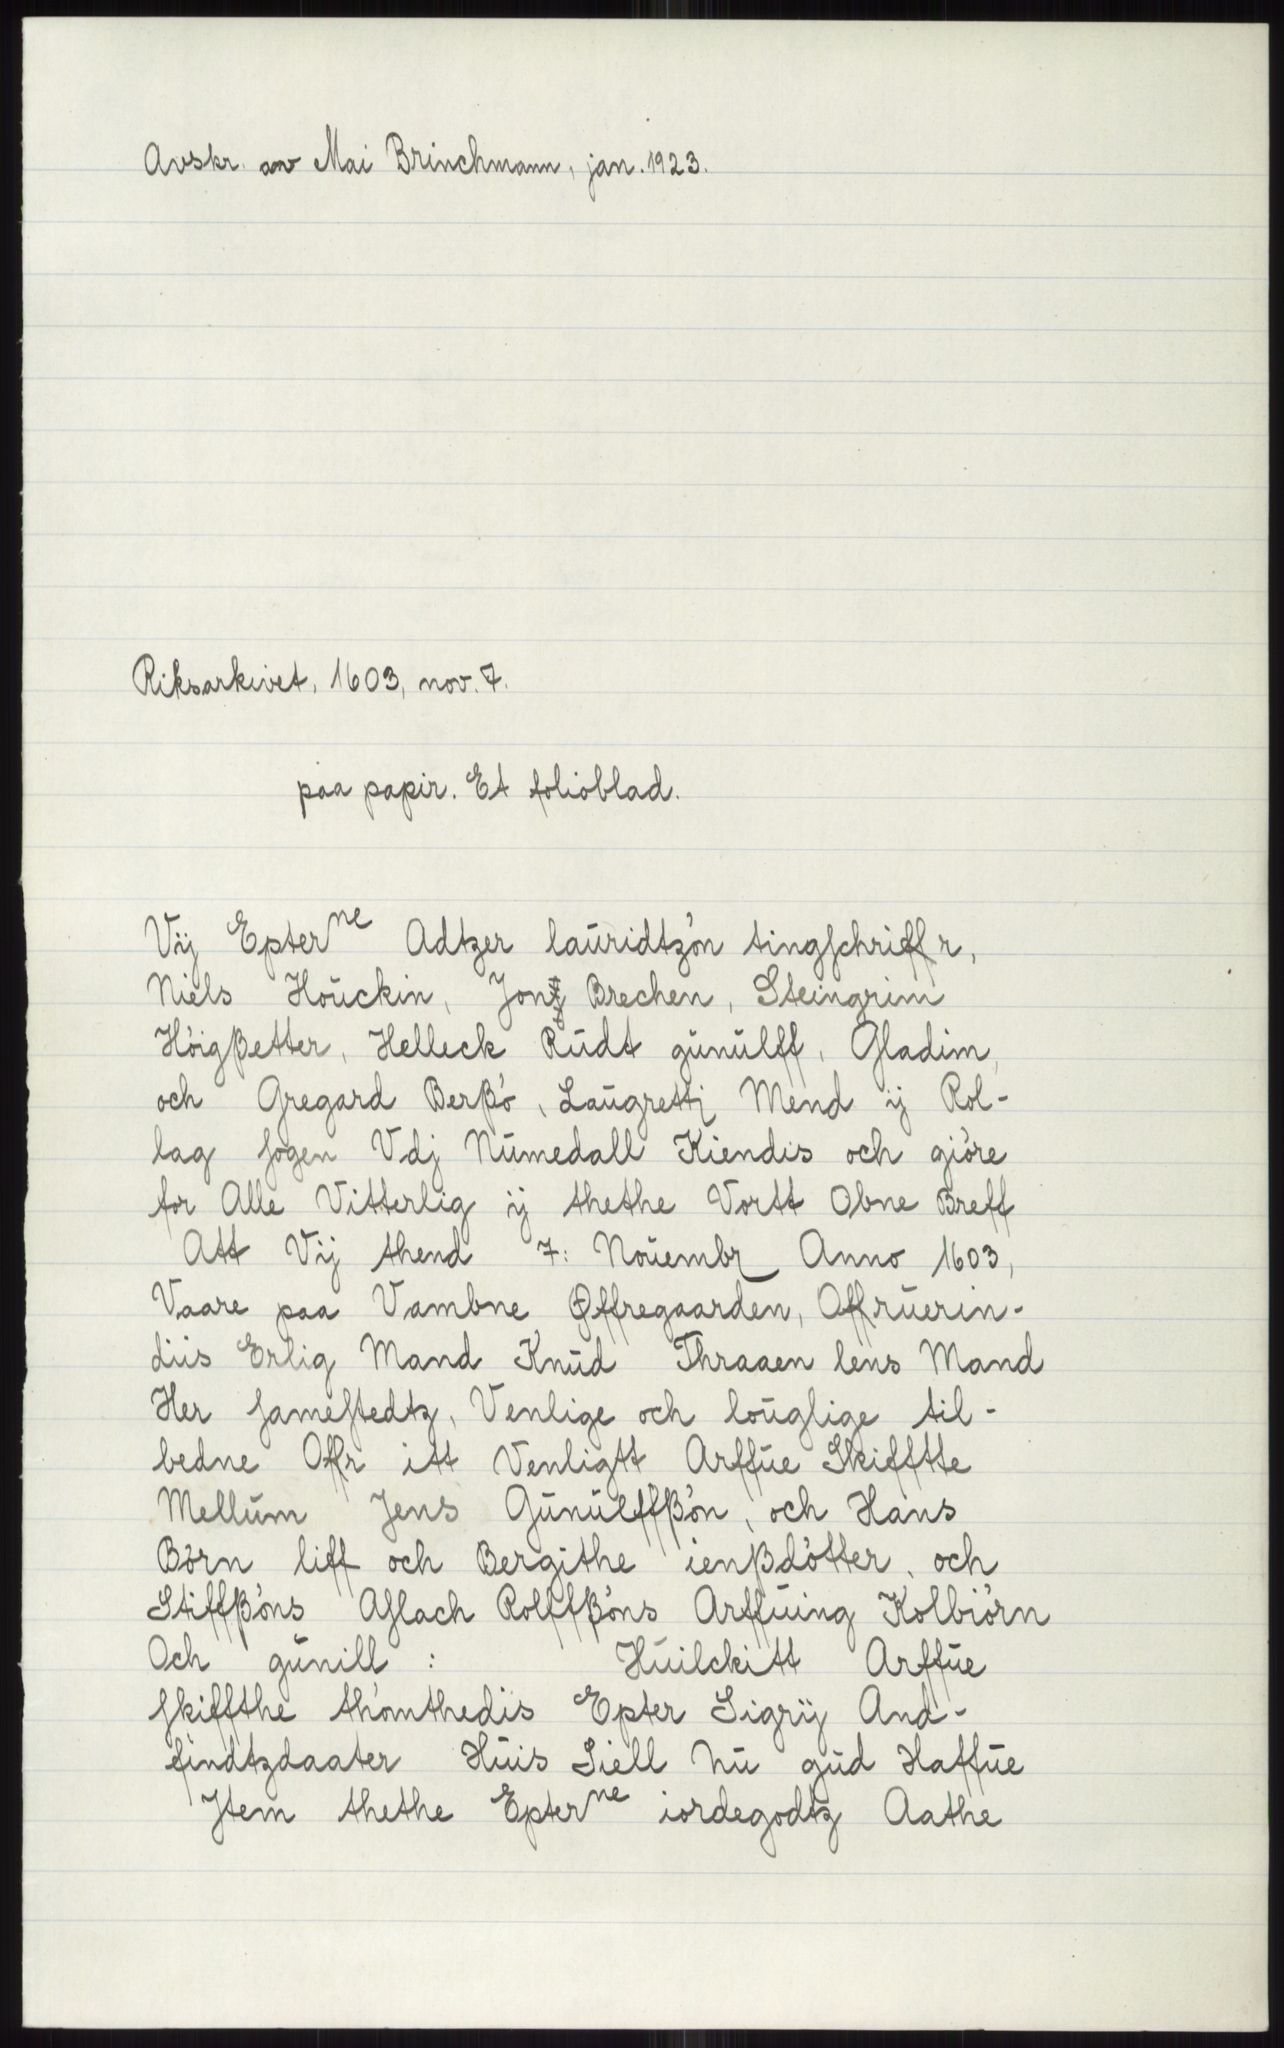 Avskr. av Mai Brinchmann, jan. 1923.
Riksarkivet, 1603, nov. 7.
paa papir. Et folioblad.
Vij Epterne Adtzer lauridtzön tingschriffr,
Niels Houckin, Brechen, Steingrim
Höigßetter, Helleck Rudt gunulff, Gladim,
och Gregard Berßö, Laugrettj Mend ij Rol-
lag sogen Vdj Numedall Kiendis och giöre
for Alle Vitterlig ij thethe Vortt Obne Breff
Att Vij thend 7: Nouembr Anno 1603,
Vaare paa Vambne Øffregaarden, Offruerin-
diis Erlig Mand Knud Thraaen lens Mand
Her samestedtz, Venlige och louglige til-
bedne Offr itt Venligtt Arffue Skifftte
Mellum Jens Gunulffßön, och Hans
Börn liff och Bergithe ienßdötter, och
Stiffßöns Aslach Rolffßöns Arffuing Kolbiörn
Och gunill : Huilckitt Arffue
skiffthe thömthedis Epter Sigrÿ And-
findtzdaater Huis Siell Nu gud Haffue
Jtem thethe Epterne iordegodtz Aathe